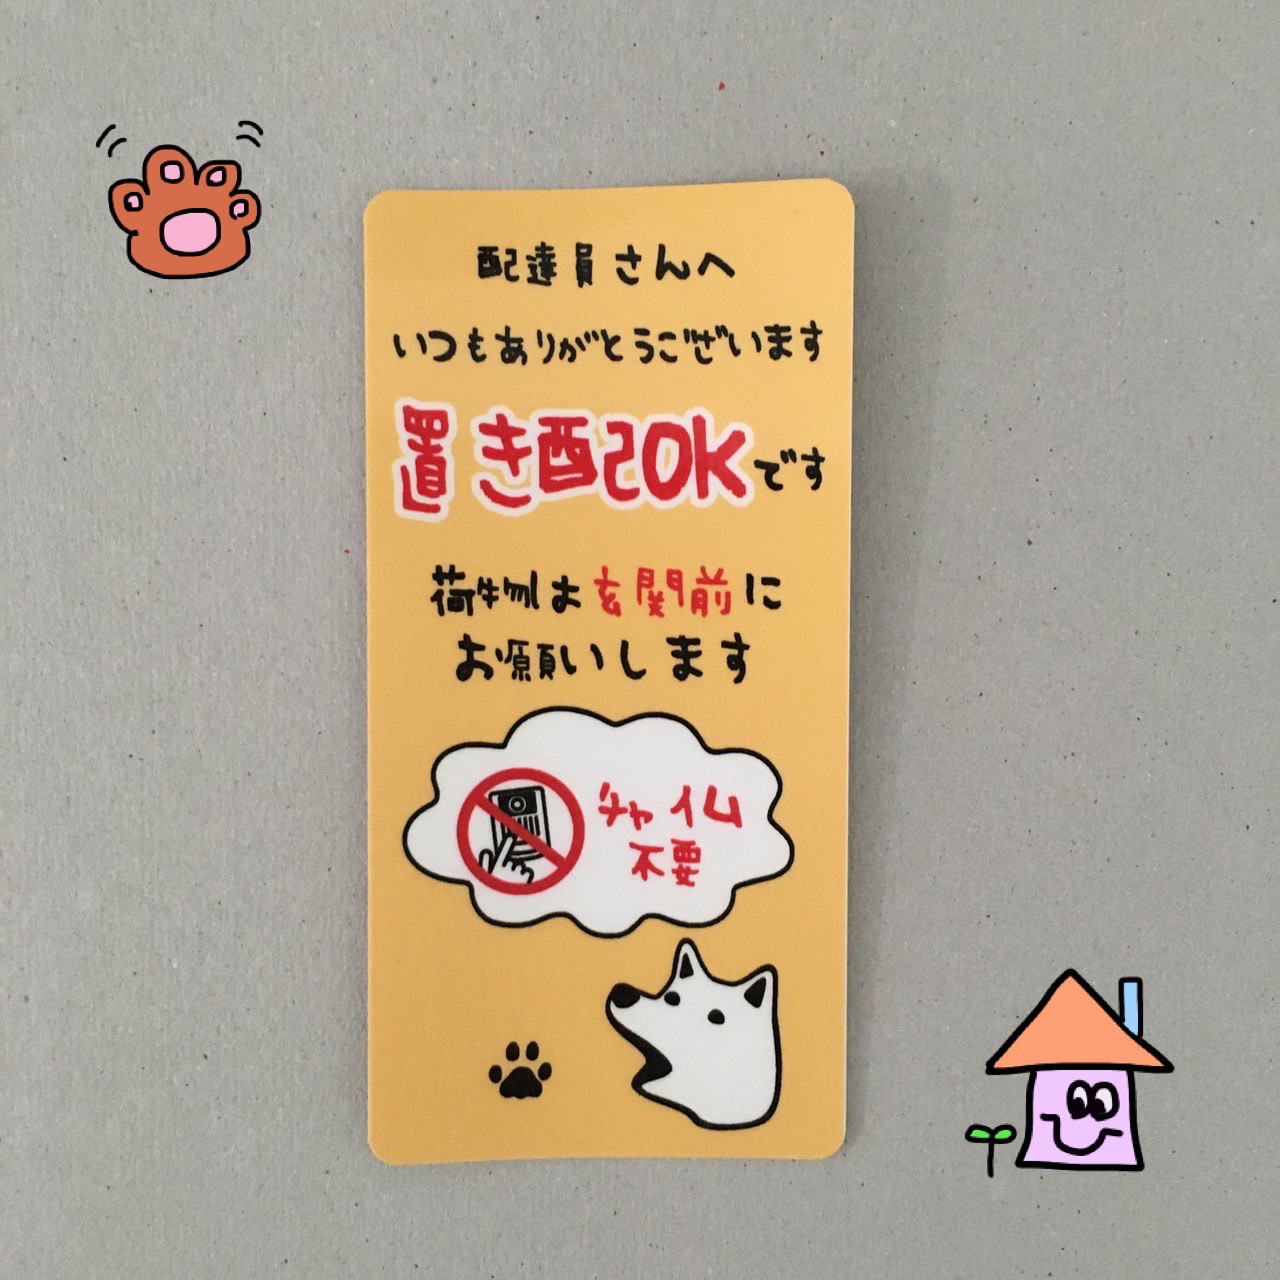 配達員さんへ
いつもありがとうございます
置き配OKです
荷物は玄関前に
お願いします
チャイム
不要